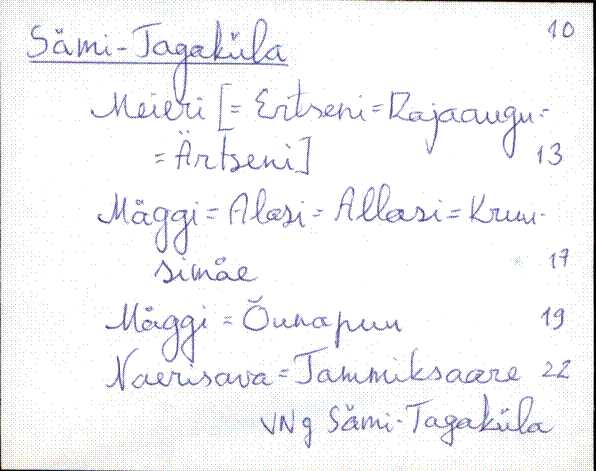 10
Sämi-Tagaküla
Meieri [= Ertseni = Rajaaugu =
= Ärtseni] 13
Mäggi = Alasi = Allasi = Kruu-
simäe 17
Mäggi = Õunapuu 19
Naerisava = Tammiksaare 22
VNg Sämi-Tagaküla